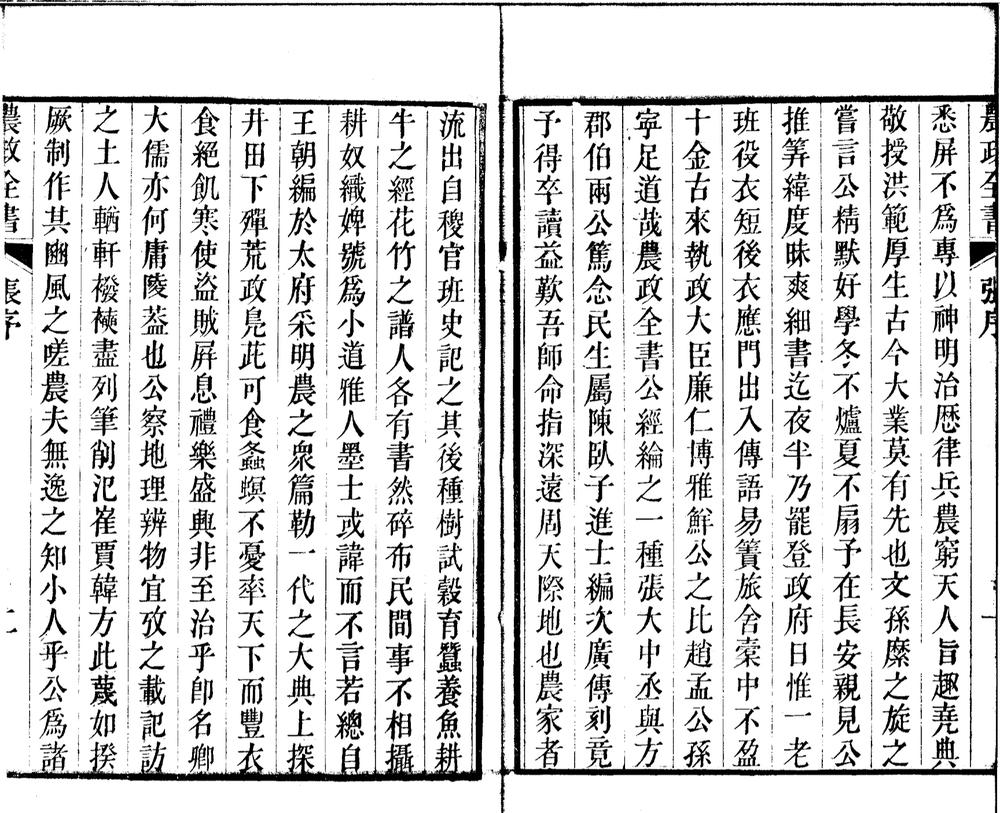 農政全書 張序 一
悉屏不爲專以神明治歷律兵農窮天人旨趣堯典
敬授洪範厚生古今大業莫有先也文孫縻之旋之
嘗言公精默好學冬不爐夏不扇予在長安親見公
推筭緯度昧爽細書迄夜半乃罷登政府日惟一老
班役衣短後衣應門出入傳語易簀旅舍槖中不盈
十金古來執政大臣廉仁博雅鮮公之比趙孟公孫
寧足道哉農政全書公經綸之一種張大中丞與方
郡伯兩公篤念民生屬陳臥子進士編次廣傳刻竟
予得卒讀益歎吾師命指深遠周天際地也農家者
流出自稷官班史記之其後種樹試穀育蠶養魚耕
牛之經花竹之譜人各有書然碎布民間事不相攝
耕奴織婢號爲小道雅人墨士或諱而不言若總自
王朝編於太府采明農之眾篇勒一代之大典上探
井田下殫荒政凫茈可食螽螟不憂率天下而豐衣
食絕飢寒使盜賊屏息禮樂盛興非至治乎卽名卿
大儒亦何庸陵葢也公察地理辨物宜攷之載記訪
之土人輶軒襏襫盡列筆削氾崔賈韓方此蔑如揆
厥制作其豳風之嗟農夫無逸之知小人乎公爲諸
農政全書 張序 二